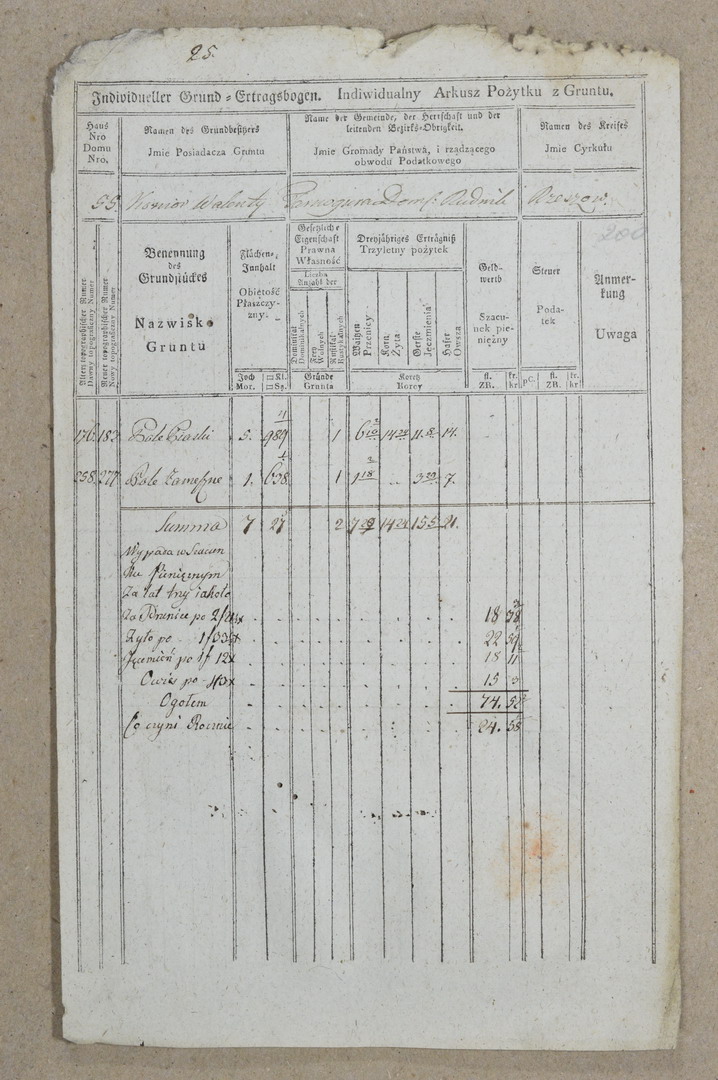 25.
Individueller Grund=Ertragsbogen. Indiwidualny Arkusz Pożytku z Gruntu.
Haus Nro Domu Nro.
Namen des Grundbesitzers
Jmie Posiadacza Gruntu
Name der Gemeinde, der Herrschaft und der leitenden Bezirks-Obrigkeit.
Jmie Gromady Państwa, i rządzącego obwodu Podatkowego
Namen des Kreises
Jmie Cyrkułu
55. Walenty Rudnik Rzeszow.
200
Alten topographischer Numer
Dawny topograficzny Numer
Neuer topographischer Numer
Nowy topograficzny Numer
Benennung
des
Grundstückes
Nazwisko
Gruntu
Flächen-
Innhalt
Obiętość
Płaszczy-
zny.
Joch Mor.
Kl. Sq.
Gesetzliche
Eigenschaft
Prawna
Własność
Liczba
Anzahl der
Dominikal
Dominikalnych
Frey
Wolnych
Rustikal
Rustykalnych
Gründe
Grunta
Dreyjähriges Erträgniß
Trzyletny pożytek
Waitzen
Przenicy
Korn
Żyta
Gerste
Jęczmienia
Haber
Owsza
Koretz
Korcy
Geld-
werth
Szacu-
nek pie-
niężny
fl. kr.
ZR. kr
Steuer
Poda-
tek
pC.
fl. kr.
ZR. kr
Anmer-
kung
Uwaga
176. 183 Pole Piaski 5. 989 1 14 24 11. 8 14.
258. 277 Pole 1. 638 1 1 18 3 29 7.
Summa 7 27 2 14 24 15 5 21.
Wypada w Szacun
ku Pieniężnym
Za lat trzy iakoto
Za Przenice po 18 38
Zyto po 1f 33 22 59
Jęczmień po 1f 12x 18 11
Owies po 43x 15 3
Ogołem 74. 52
Co czyni Rocznie 24. 58